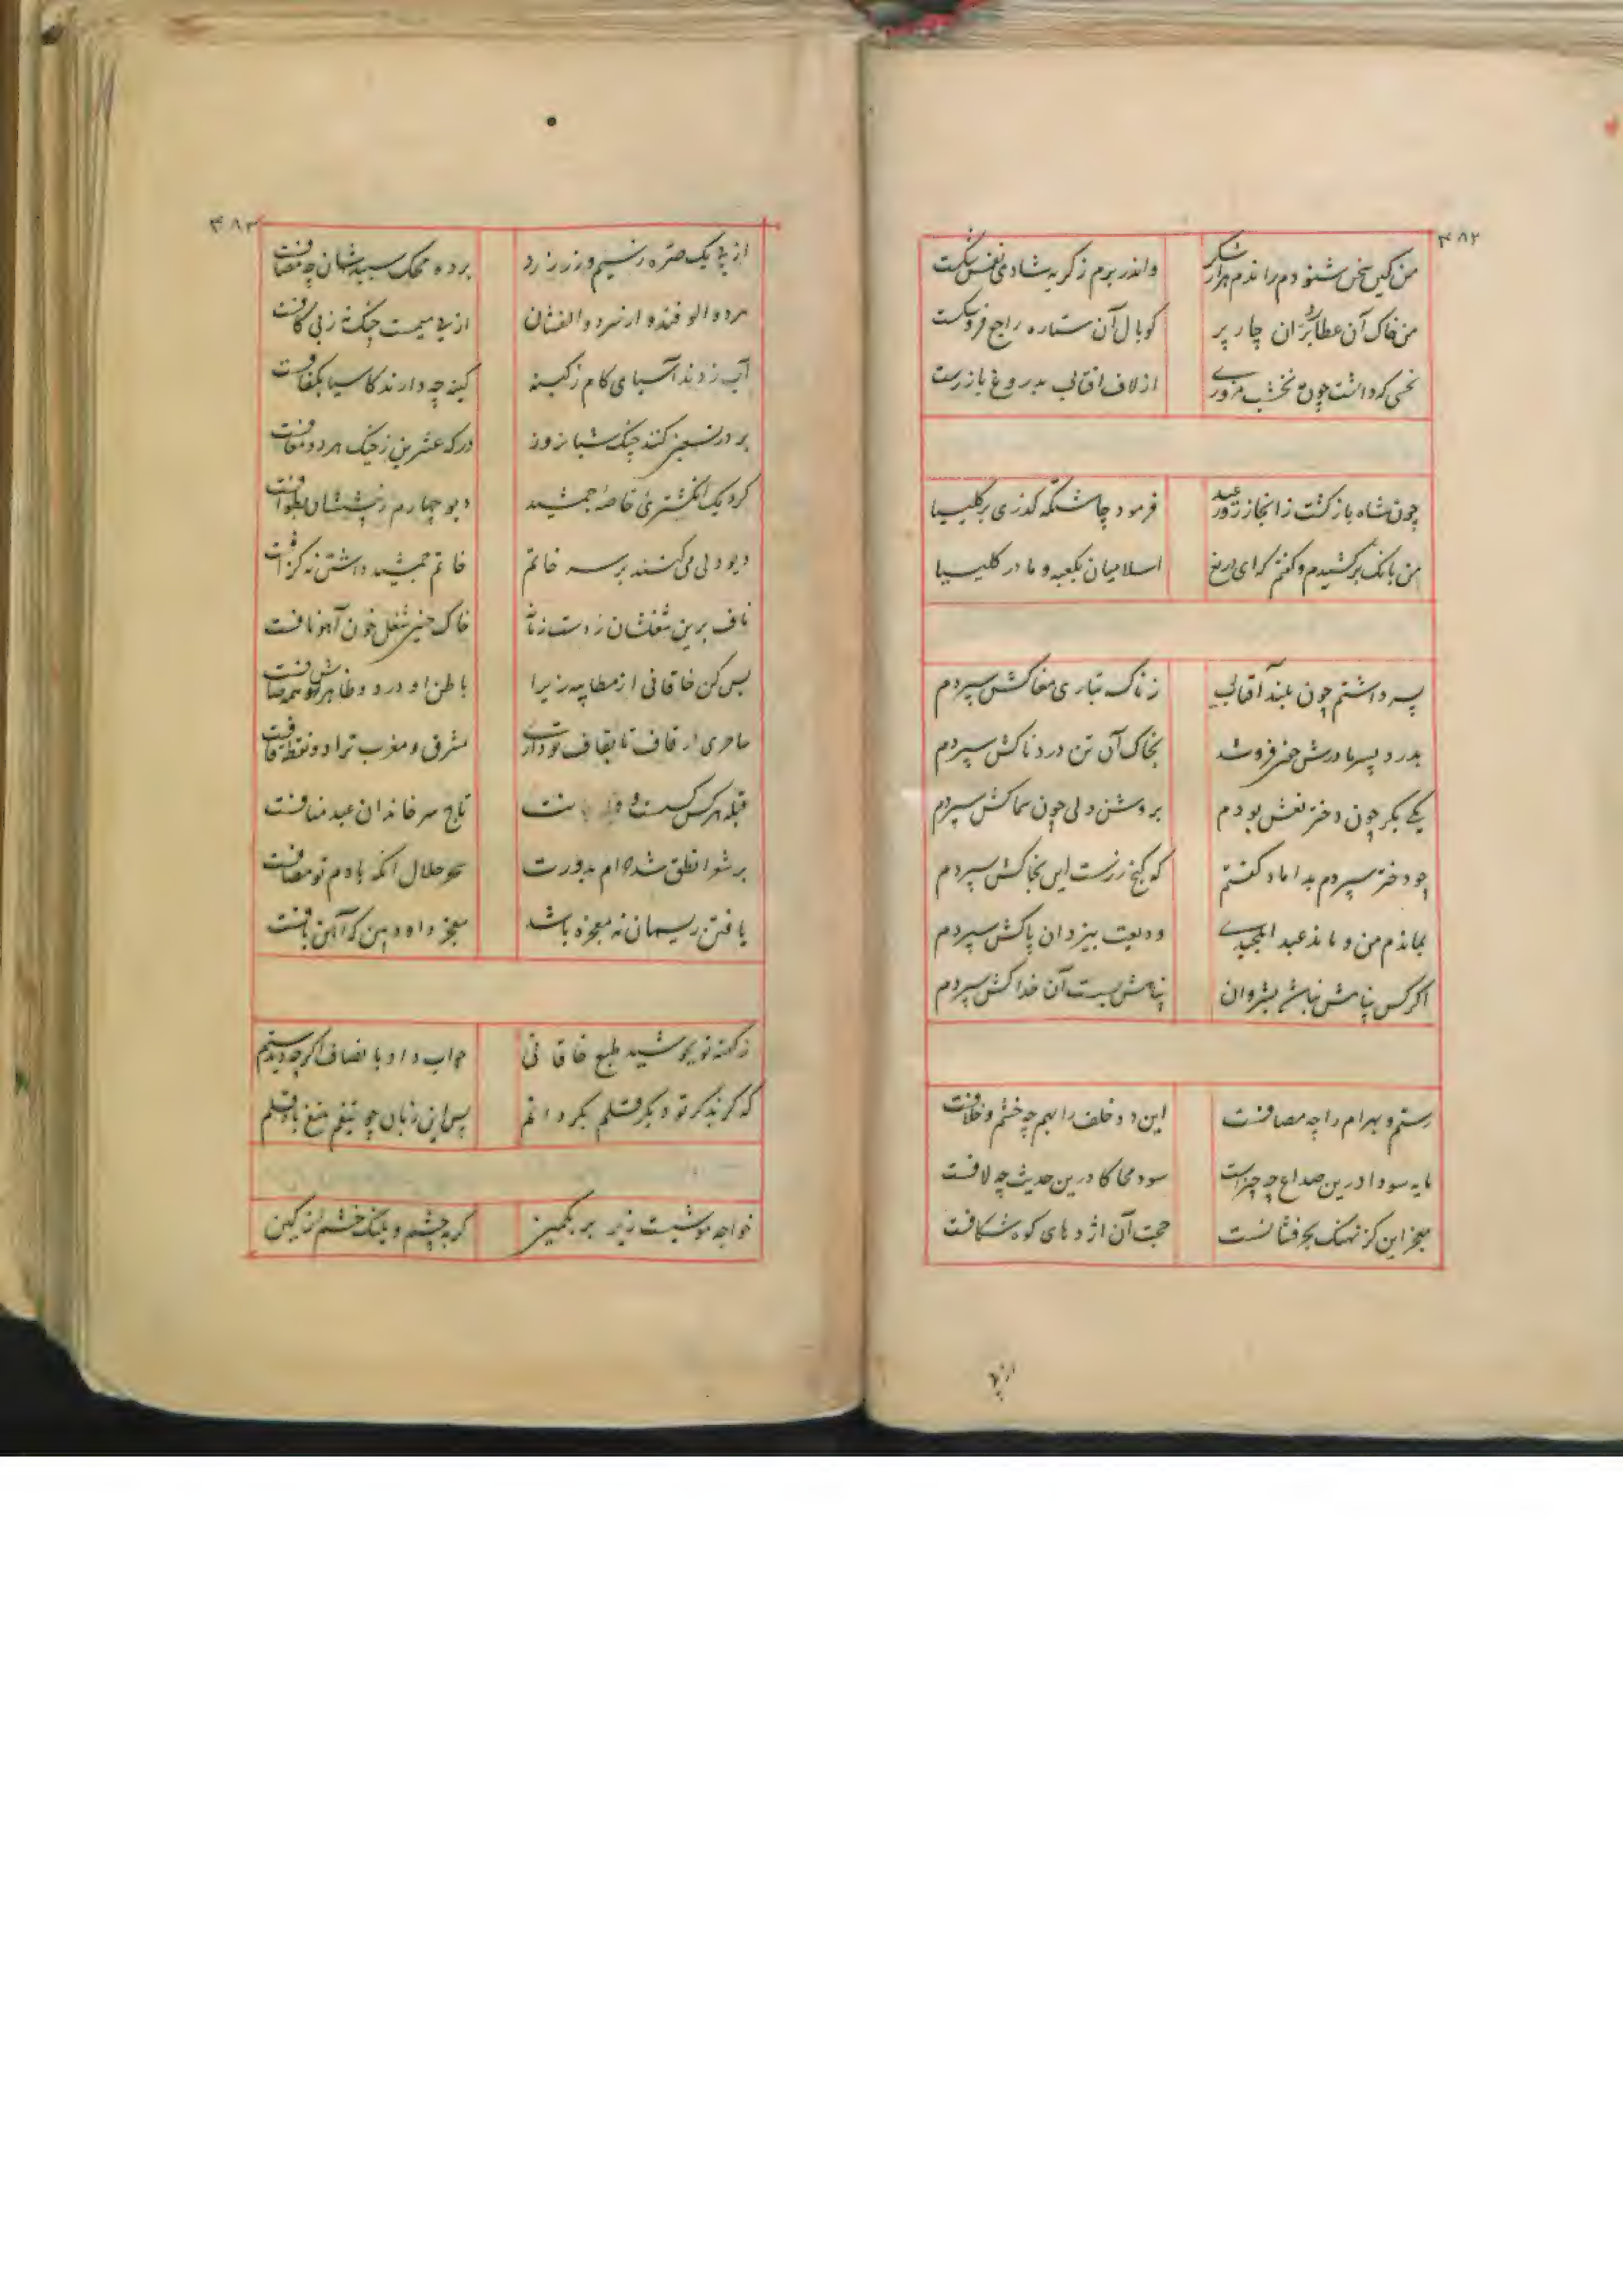 ۴۸۲
من کین سخن شنودم راندم هزار شکر واندر برم ز گریه شادی نفس شکست
من خاک آن عطارد پران چار پر کو بال آن ستاره راجع فرو شکست
نحسی که داشت چون مه نخشب مزوری از لاف آفتابی بدروغ باز رست
چون شاه باز گشت ز انجاز روز عید فرمود چاشتگه گذری بر کلیسیا
من بانک برکشیدم و گفتم که ای دریغ اسلامیان بکعبه و ما در کلیسیا
پسر داشتم چون بلند آفتابی ز ناگه بتاری مغاکش سپردم
بدرد پسر مادرش چون فروشد بخاک آن تن دردناکش سپردم
یکی بکر چون دختر نعش بودم بروشن دلی چون سماکش سپردم
چو دختر سپردم بداماد گفتم که گنج زرست این بخاکش سپردم
بماندم من و ماند عبد المجیدی ودیعت بیزدان پاکش سپردم
اگر کس پناهش نباشد بشروان پناهش بست آن خدا کش سپردم
رستم و بهرام را بهم چه مصافست این دو خلف را بهم چه خشم و خلافست
مایه سودا درین صداع چه چیزاست سود محاکا درین حدیث چه لافست
معجز این گر نهنک بحر فشانست حجت آن اژدهای کوه شکافست
از پی
۴۸۳
از پی یک صره سیم و زر زرد برده محک سپیدشان چه مصافست
از پی میمست جنک نز پی کافست
آب زدند آسیای کام ز کینه کینه چه دارند کاسیا بکفافست
گرد یک انگشتری خاصه جمشید دیو چهارم ز پیششان بطوافست
دیو دلی می‌کنند بر سر خاتم خاتم جمشید داشتن نه گزافست
ناف برین شغلشان زدست زمانه خاک چنین شغل خون آهو نافست
بس کن خاقانی از مطایبه زیرا باطن او درد و ظاهر تو همه صافست
مشرق و مغرب ترا دو نقطه قافست
قبله هر کس کست تاج سر خاندان عبد منافست
بر شعرا نطق شد حرام بدورت سحر حلال آنکه با دم تو مضافست
یافتن ریسمان نه معجزه باشد معجز داود بین که آهن بافست
ز گفته تو بجوشید طبع خاقانی جواب داد بانصاف اگر چه دید ستم
که گر بذکر تو دیگر قلم بگردانم پس این زبان چو تیغم چو تیغ باد قلم
خواجه موشیست زیر بر بکمین گربه چشم و پلنگ خشم از کین